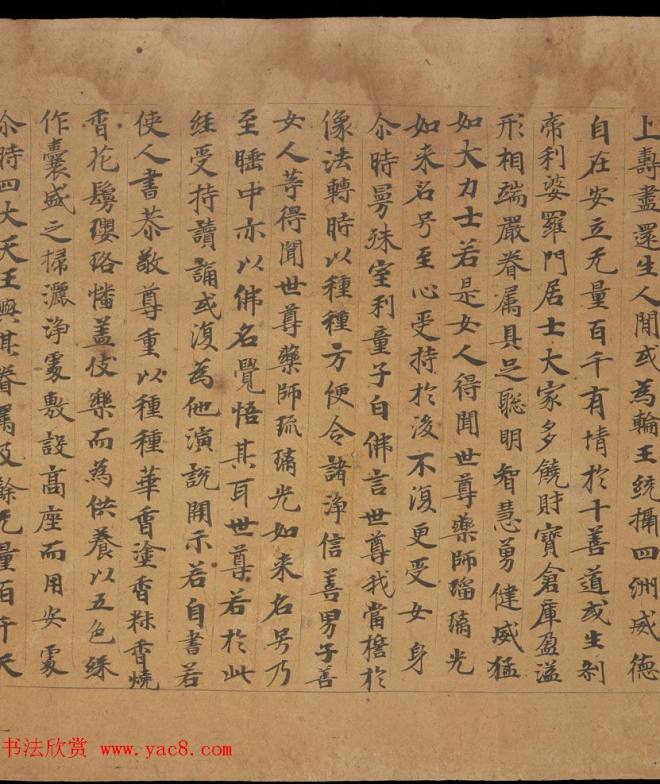 上壽盡還生人間或為輪王統攝四洲威德
自在安立无量百千有情於十善道或生刹
帝利婆羅門居士大家多饒財寶倉庫盈溢
形相端嚴眷属具足聡明智慧勇健威猛
如大力士若是女人得聞世尊藥師瑠璃光
如来名号至心受持於後不復更受女身
尒時曼殊室利童子白佛言世尊我當擔於
像法轉時以種種方便令諸浄信善男子善
女人等得聞世尊藥師琉璃光如来名号乃
至睡中亦以佛名覺悟其耳世尊若於此
經受持讀誦或復為他演說開示若自書若
使人書恭敬尊重以種種華香塗香粖香燒
香花鬘瓔珞幡盖伎樂而為供養以五色綵
作囊盛之掃灑浄處敷設高座而用安處
尒時四大天王與其眷属及餘无量百千天
书法欣赏 www.yac8.com